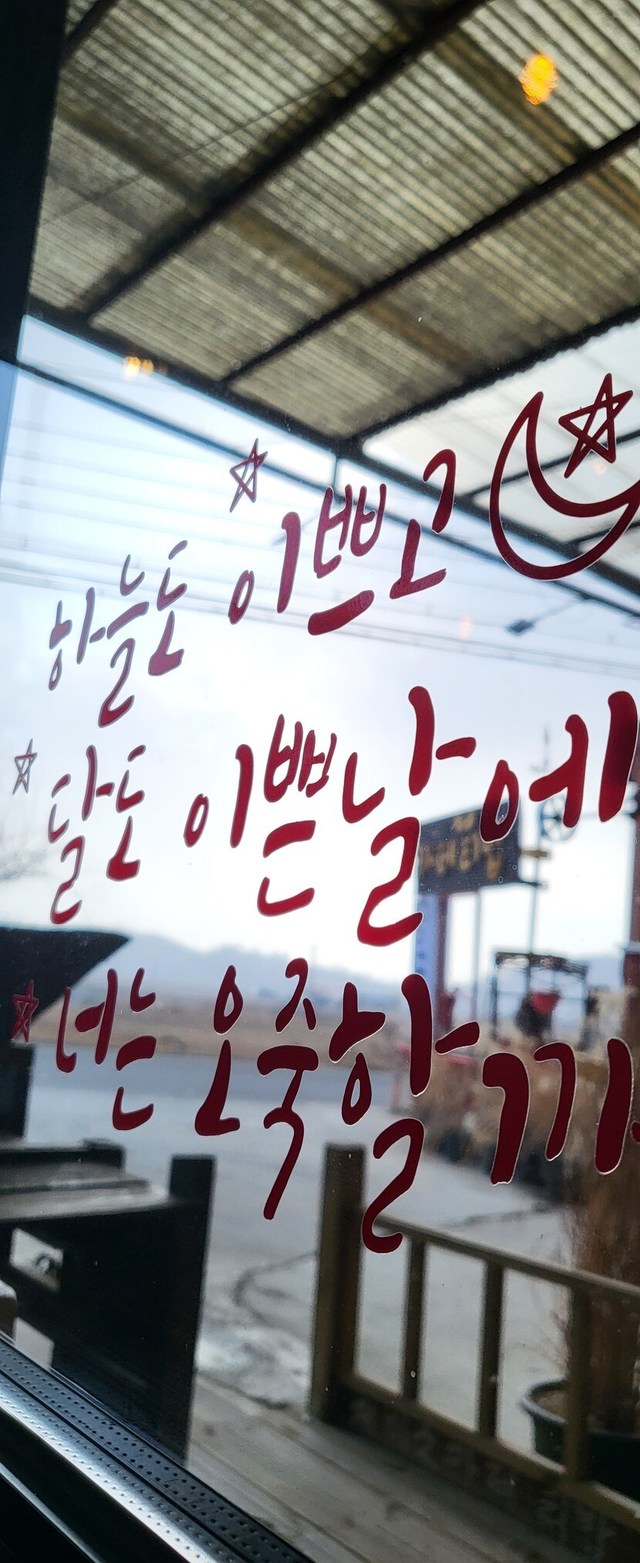 하늘도 이쁘고
달도 이쁜날에
너는 오죽할까